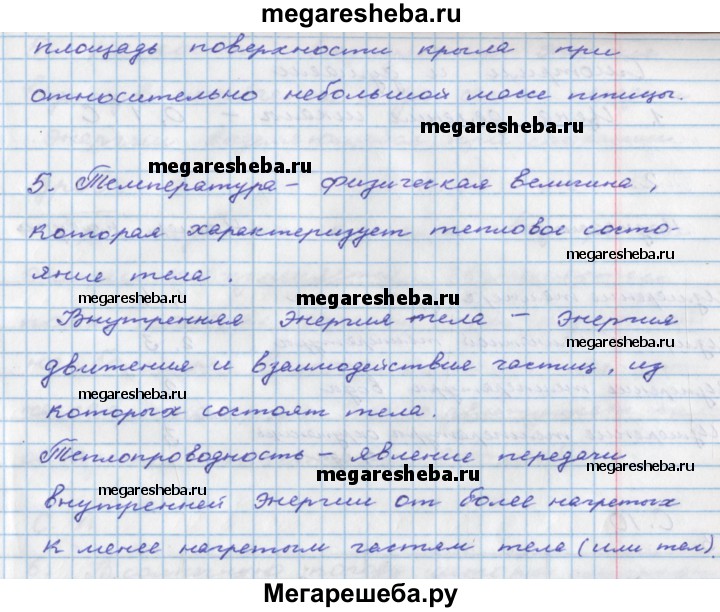 megaresheba.ru
площадь поверхности крыла при
относительно небольшой массе птицы.
megaresheba.ru
megaresheba.ru
5. Температура – физическая величина,
которая характеризует тепловое состо-
megaresheba.ru
яние тела.
megaresheba.ru
megaresheba.ru
Внутренняя энергия тела – энергия
megaresheba.ru
движения и взаимодействия частиц, из
megaresheba.ru
которых состоят тела.
megaresheba.ru
Теплопроводность – явление передачи
megaresheba.ru
megaresheba.ru
внутренней энергии от более нагретых
megaresheba.ru
к менее нагретым частям тела (или тел).
Мегарешеба.ру